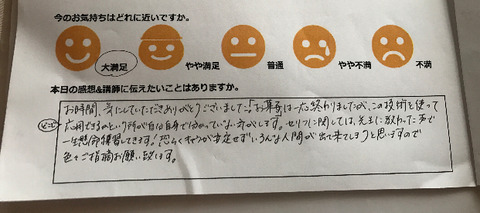 今のお気持ちはどれに近いですか。
大満足 やや満足 普通 やや不満 不満
本日の感想&講師に伝えたいことはありますか。
お時間、気にしていただきありがとうございました。お芝居は一応終わりましたが、この技術を使って
応用できるのという所が自分自身で分かっていない気がします。セリフに関しては、先生に教わった事で
一生懸命練習してきます。恐らくキャラが安定せずいろんな人間が出て来てしまうと思いますので
色々ご指摘お願い致します。